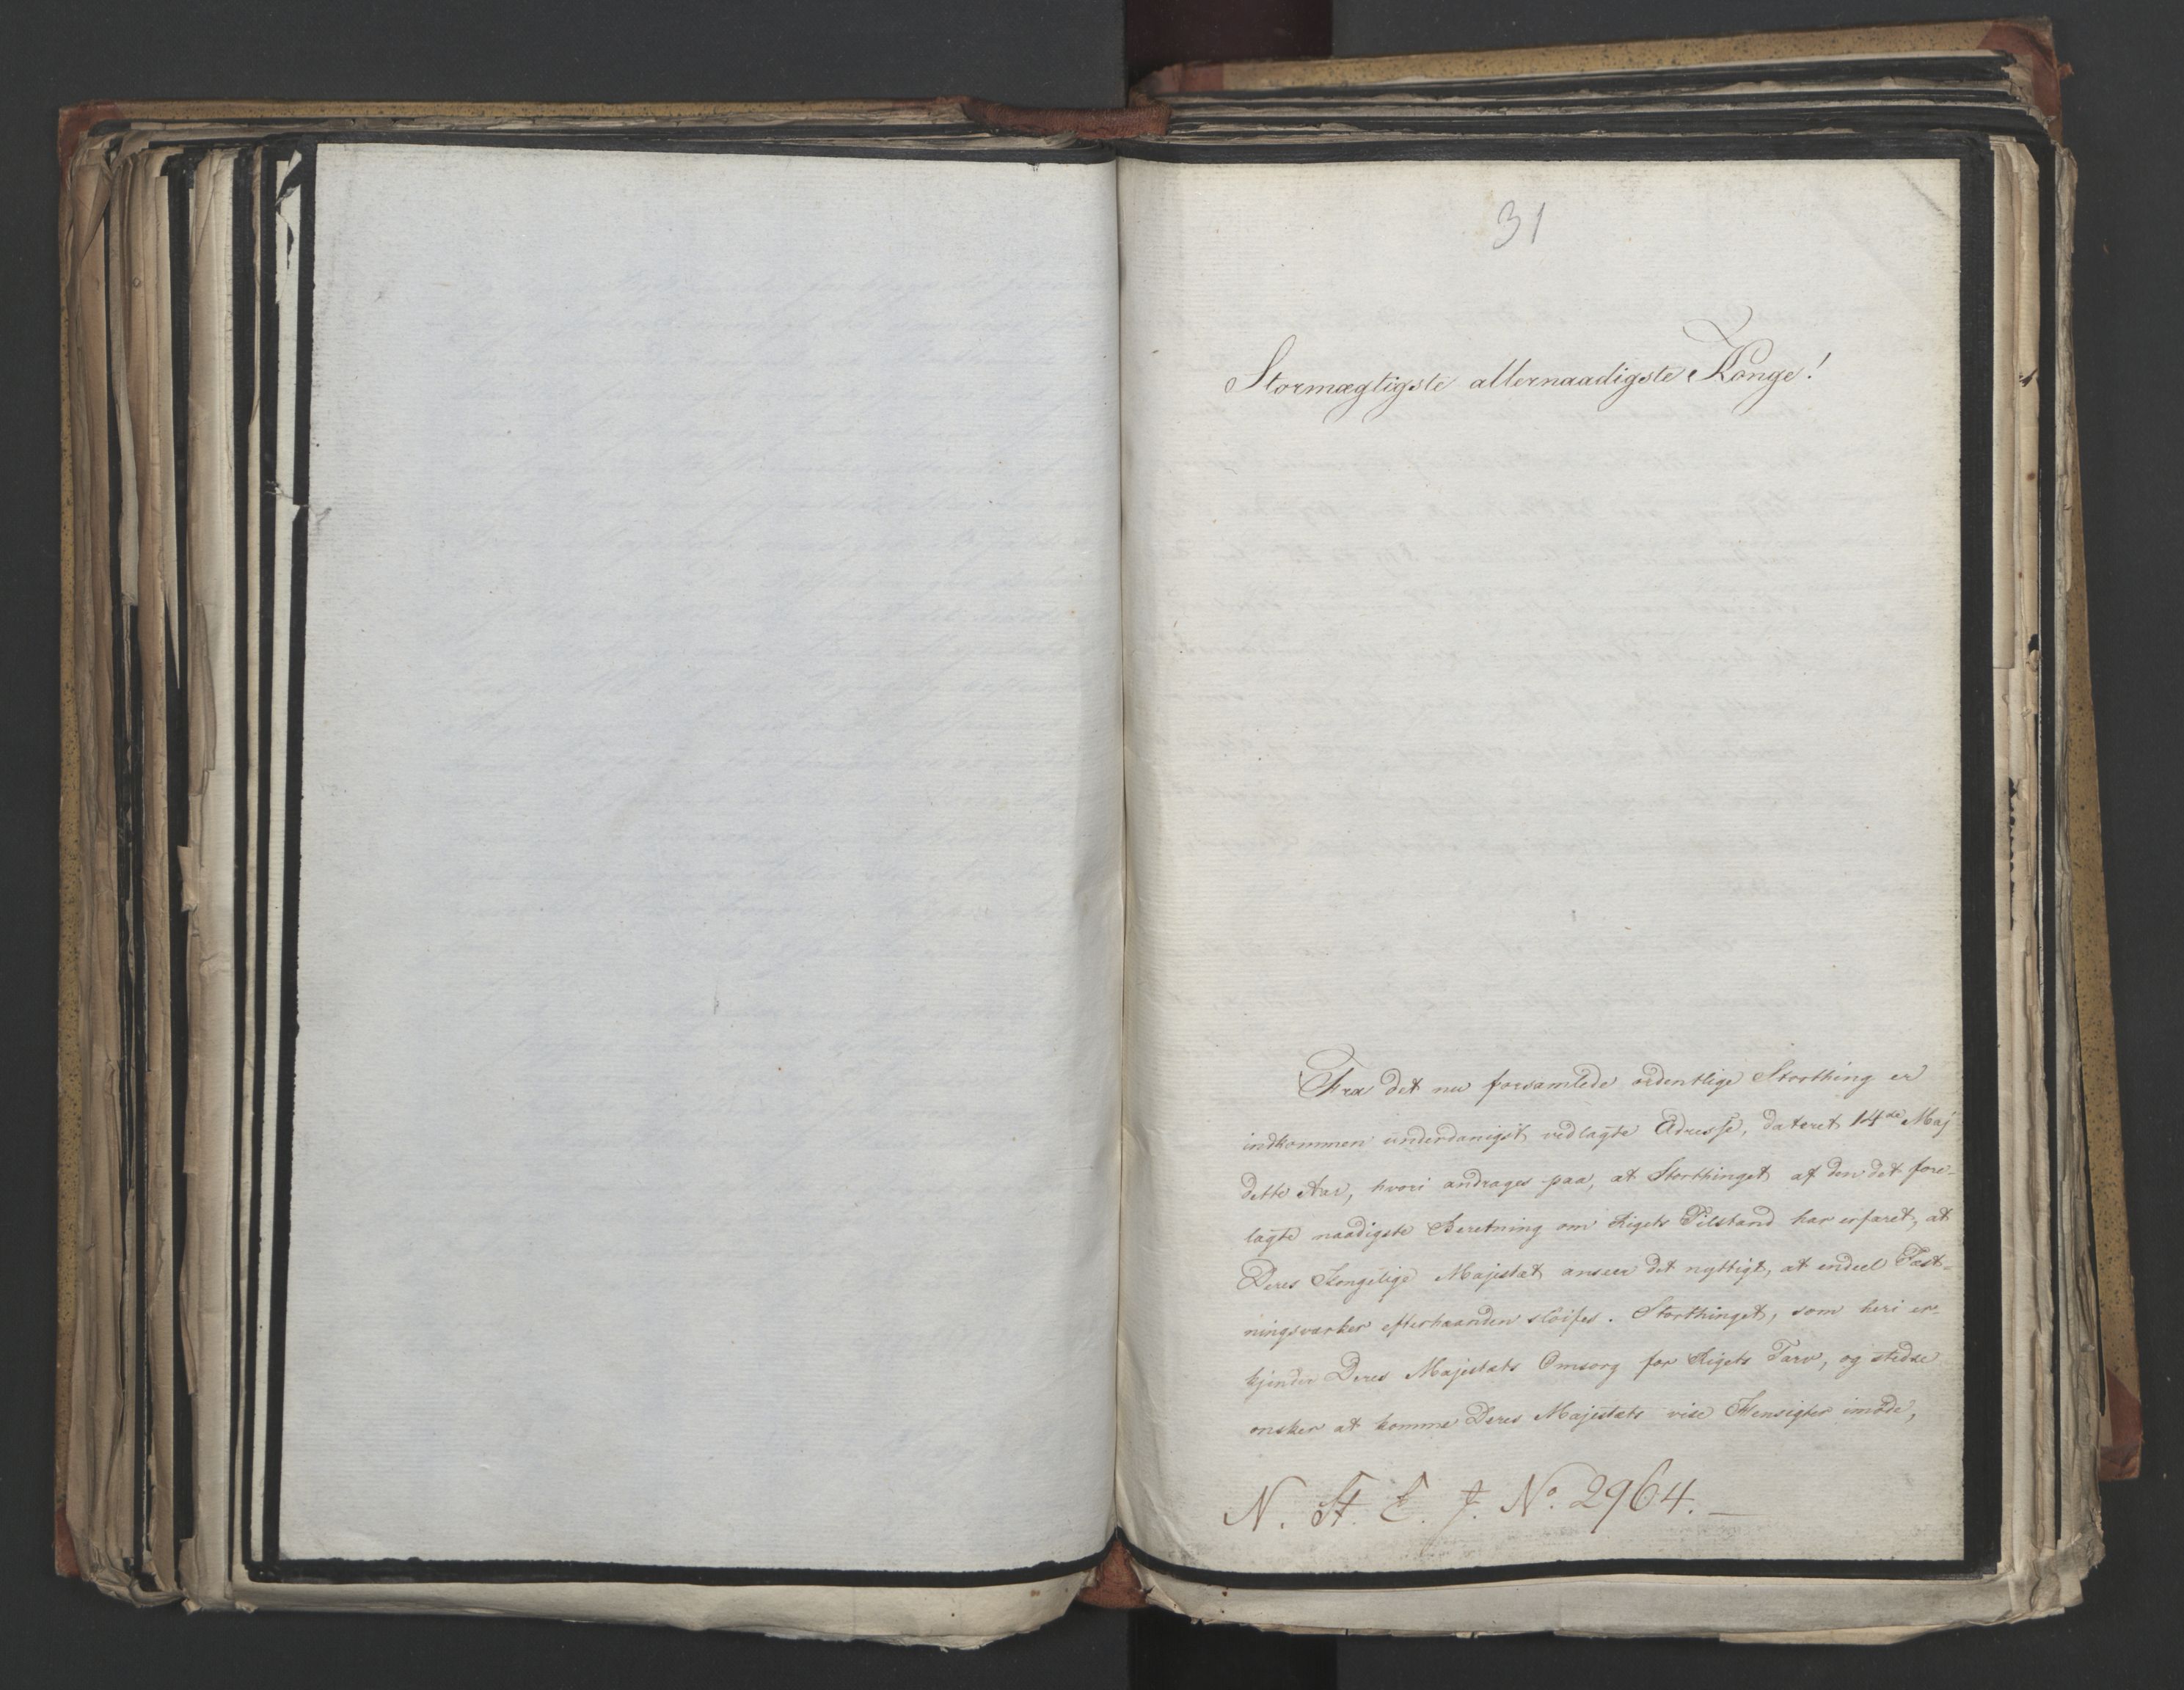 31
Stormægtigste allernaadigste Konge!
Fra det nu forsamlede ordentlige Storthing er
indkommen underdanigst vedlagte Adresse, dateret 14de Maj
dette Aar, hvori andrages paa, at Storthinget af den det fore-
lagte naadigste Beretning om Rigets Tilstand har erfaret, at
Deres Kongelige Majestæt anseer det nyttigt, at endeel Fæst-
ningsværker efterhaanden sløifes. Storthinget, som heri er-
kjender Deres Majestæts Omsorg for Rigets Tarv, og stedse
ønsker at komme Deres Majestæts vise Hensigter imøde,
N. St. E. J. No. 2964.